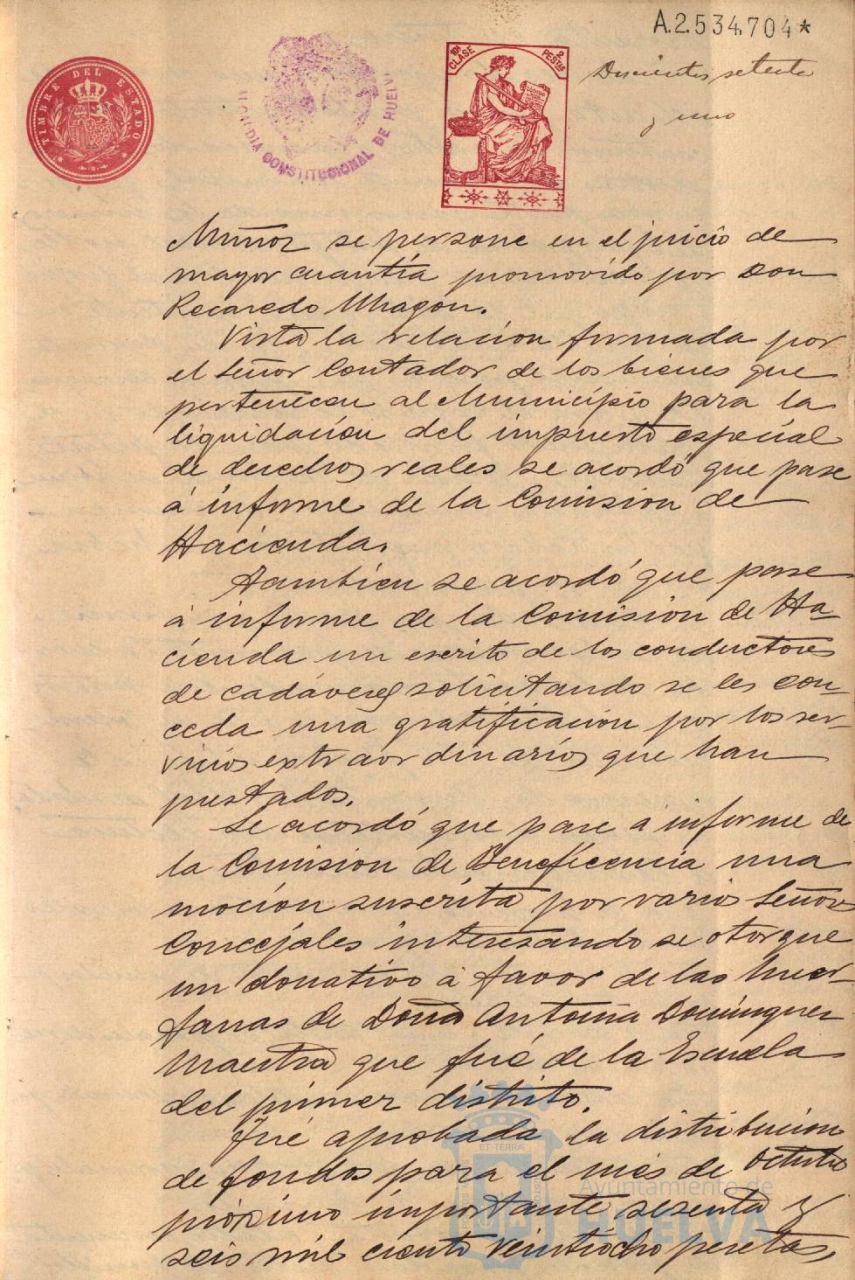 A.2.534.704*
TIMBRE DEL ESTADO
ALCALDIA CONSTITUCIONAL DE HUELVA
CLASE
2 PESETAS
Doscientos setenta
y uno
Muñoz se persone en el juicio de
mayor cuantía promovido por Don
Recaredo Uhagon.
Vista la relacion formada por
el Señor Contador de los bienes que
pertenecen al Municipio para la
liquidacion del impuesto especial
de derechos reales se acordó que pase
á informe de la Comision de
Hacienda.
Tambien se acordó que pase
á informe de la Comision de Ha-
cienda un escrito de los conductores
de cadáveres solicitando se les con-
ceda una gratificacion por los ser-
vicios extraordinarios que han
prestados.
Se acordó que pase a informe de
la Comision de Beneficencia una
mocion suscrita por varios Señores
Concejales interesando se otorgue
un donativo á favor de las huer-
fanas de Doña Antonia Dominguez
Maestra que fué de la Escuela
del primer distrito.
Fué aprobada la distribucion
de fondos para el mes de Octubre
próximo importante sesenta y
seis mil ciento veintiocho pesetas,
Ayuntamiento de
HUELVA